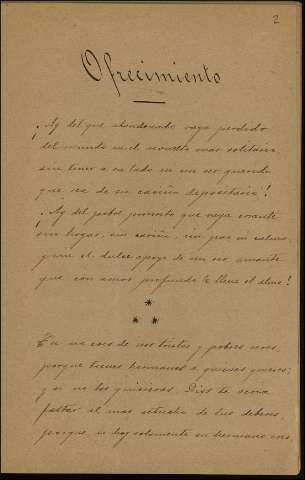 2
Ofrecimiento
¡Ay del que abandonado vaya perdido
del mundo en el revuelto mar solitario
sin tener a su lado un ser querido
que sea de su cariño depositario!
¡Ay del pobre que vaya errante
sin hogar, sin cariño, sin paz ni calma,
sin el dulce apoyo de un ser amante
que con amor profundo le llene el alma!
*
* *
Tú no eres de esos tristes y pobres seres,
porque tienes hermanos a quienes quieres;
y si no los quisieras, Dios te
faltar al mas de tus deberes,
porque, si hay solamente un hermano